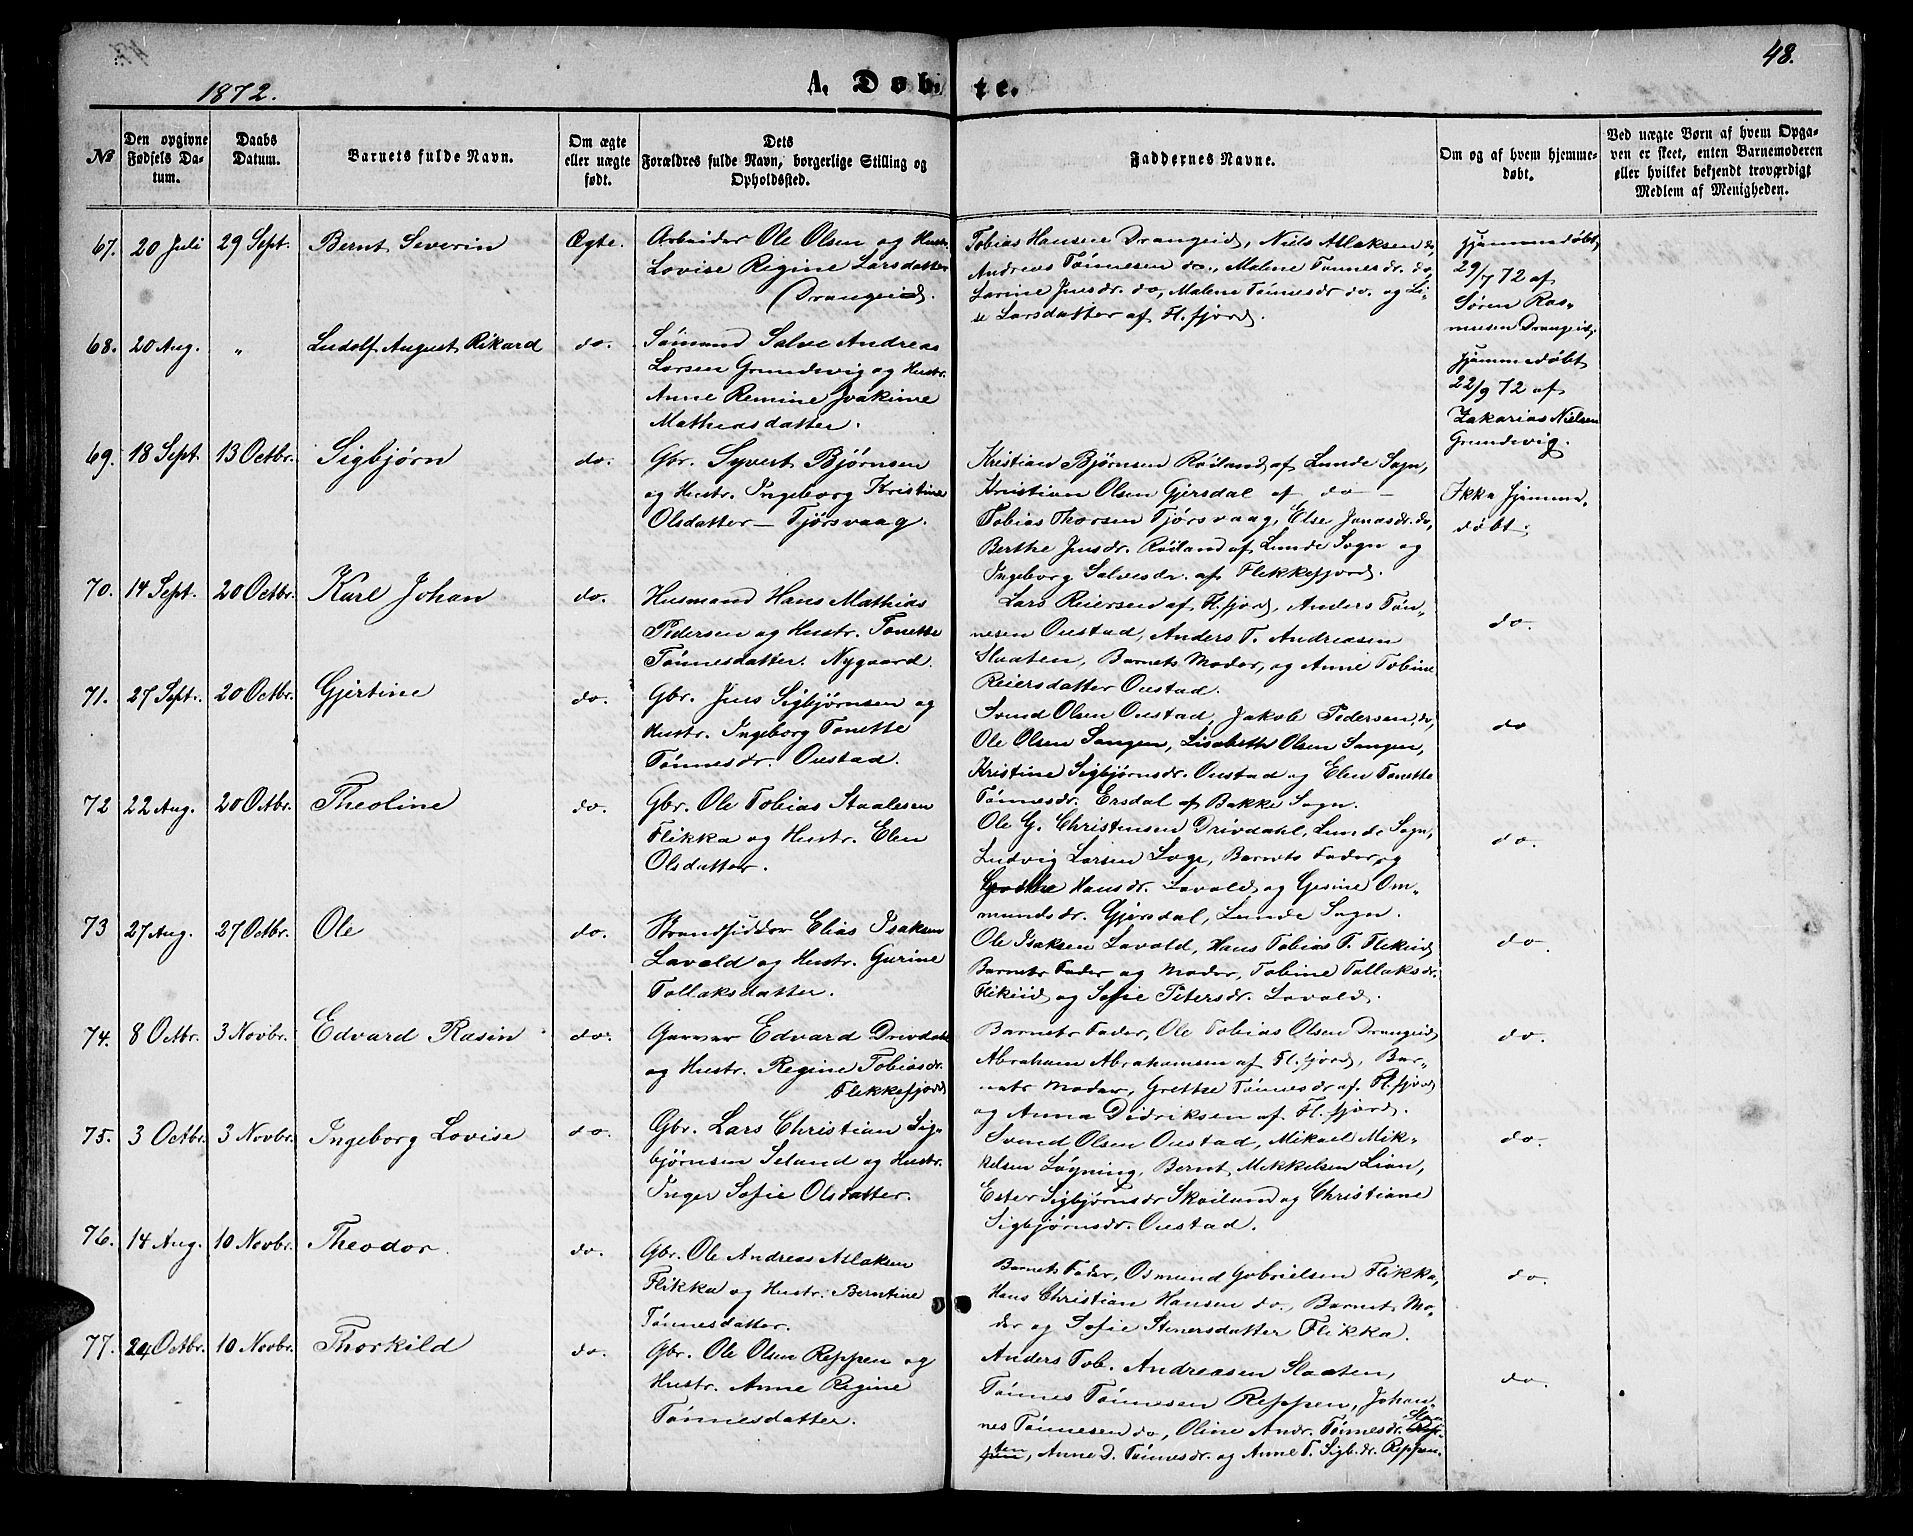 48.
1872.
A. Døbte.
№
Den opgivne Fødsels Datum.
Daabs Datum.
Barnets fulde Navn.
Om ægte eller uægte født.
Dets Forældres fulde Navn, borgerlige Stilling og Opholdssted.
Faddernes Navne.
Om og af hvem hjemmedøbt.
Ved uægte Børn af hvem Opgaven er skeet, enten Barnemoderen eller hvilket bekjendt troværdigt Medlem af Menigheden.
67. 20 Juli 29 Sept. Bernt Severin Ægte.
Arbeider Ole Olsen og Hustr.
Lovise Regine Larsdatter
Drangeid.
Tobias Hansen Drangeid, Niels Atlaksen do,
Andreas Tønnesen do., Malene Tønnesdr. do,
Larine Jensdr. do, Malene Tønnesdr do. og Li-
se Larsdatter af Fl.fjord.
Hjemmedøbt
29/7 72 af
Søren Ras-
musen Drangeid.
68. 20 Aug. " Ludolf August Rikard do.
Sømand Salve Andreas
Larsen Grundevig og Hustr.
Anne Remine Joakime
Mathiasdatter.
Hjemmedøbt
22/9 72 af
Zakarias Nielsen
Grundevig.
69. 18 Sept. 13 Octbr. Sigbjørn do.
Gbr. Syvert Bjørnsen
og Hustr. Ingeborg Kristine
Olsdatter — Tjørsvaag.
Kristian Bjørnsen Røiland af Lunde Sogn,
Kristian Olsen Gjersdal af do —
Tobias Thorsen Tjørsvaag, Else Jonasdr. do,
Berthe Jensdr. Røiland af Lunde Sogn og
Ingeborg Salvesdr. af Flekkefjord.
Ikke hjemme-
døbt.
70. 14 Sept. 20 Octbr. Karl Johan do.
Husmand Hans Mathias
Pedersen og Hustr. Tonette
Tønnesdatter. Nygaard.
Lars Reiersen af Fl.fjord, Anders Tøn-
nesen Oustad, Anders T. Andreasen
Slaaten, Barnets Moder, og Anne Tobine
Reiersdatter Oustad.
do.
71. 27 Sept. 20 Octbr. Gjertine do.
Gbr. Jens Sigbjørnsen og
Hustr. Ingeborg Tonette
Tønnesdr. Oustad.
Svend Olsen Oustad, Jakob Pedersen do,
Ole Olsen Sangen, Lisabeth Olsen Sangen,
Kristine Sigbjørnsdr. Oustad og Elen Tonette
Tønnesdr. Ersdal af Bakke Sogn.
do
72 22 Aug. 20 Octbr. Theoline do.
Gbr. Ole Tobias Staalesen
Flikka og Hustr. Elen
Olsdatter.
Ole G. Christensen Drivdahl, Lunde Sogn,
Ludvig Larsen Loge, Barnets Fader, og
Grethe Hansdr. Lavold og Gesine Om-
mundsdr. Gjersdal, Lunde Sogn.
do.
73 27 Aug. 27 Octbr. Ole do.
Strandsidder Elias Isaksen
Lavold og Hustr. Gurine
Tollaksdatter.
Ole Isaksen Lavold, Hans Tobias T. Flikeid
Barnets Fader og Moder, Tobine Tollaksdr.
Flikeid og Sofie Petersdr. Lavold.
do.
74. 8 Octbr. 3 Novbr. Edvard Rasin do.
Garver Edvard Drivdahl
og Hustr. Regine Tobiasdr.
Flekkefjord
Barnets Fader, Ole Tobias Olsen Drangeid,
Abraham Abrahamsen af Fl.fjord, Bar-
nets Moder, Grethe Tønnesdr af. Fl.fjord
og Anna Didriksen af Fl.fjord.
do.
75. 3 Octbr. 3 Novbr. Ingeborg Lovise do.
Gbr. Lars Christian Sig-
bjørnsen Seland og Hustr.
Inger Sofie Olsdatter.
Svend Olsen Oustad, Mikael Mik-
kelsen Løyning, Bernt Mekkelsen Lian,
Ester Sigbjørnsdr Skoiland og Christiane
Sigbjørnsdr. Oustad.
do.
76. 14 Aug. 10 Novbr. Theodor. do.
Gbr. Ole Andreas Atlaksen
Flikka og Hustr. Berntine
Tønnesdatter.
Barnets Fader, Osmund Gabrielsen Flikka,
Hans Christian Hansen do., Barnets Mo-
der og Sofie Stenersdatter Flikka.
do.
77. 24 Octbr. 10 Novbr. Thorkild do.
Gbr. Ole Olsen Reppen og
Hustr. Anne Regine
Tønnesdatter.
Anders Tob. Andreasen Slaaten,
Tønnes Tønnesen Reppen, Johan-
nes Tønnesen do, Oline Andr. Tønnesdr. Slaa-
ten, Anne D. Tønnesdr. og Anne T. Sigb.dr. Reppen.
do.